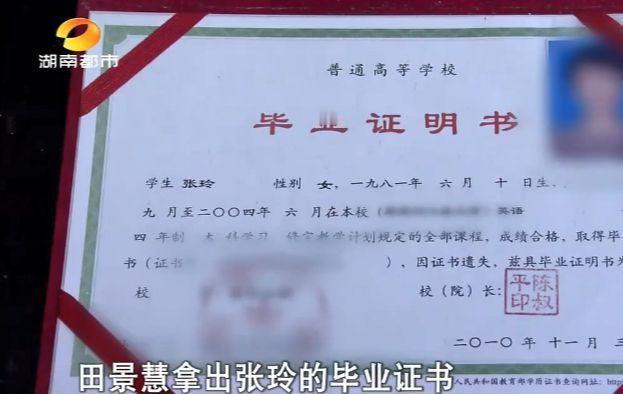 湖南都市
普通高等学校
毕业证明书
学生 张玲 性别 女,一九八一年 六月 十日生,
九月至二〇〇四年 六月在本校( 英语
四年制 本科学习 修完教学计划规定的全部课程,成绩合格,取得毕
书(证书 ),因证书遗失,兹具毕业证明书
校 校(院)长: 陈叔平印
二〇一〇年 十一月 三
人民共和国教育部学历证书查询网址:
田景慧拿出张玲的毕业证书